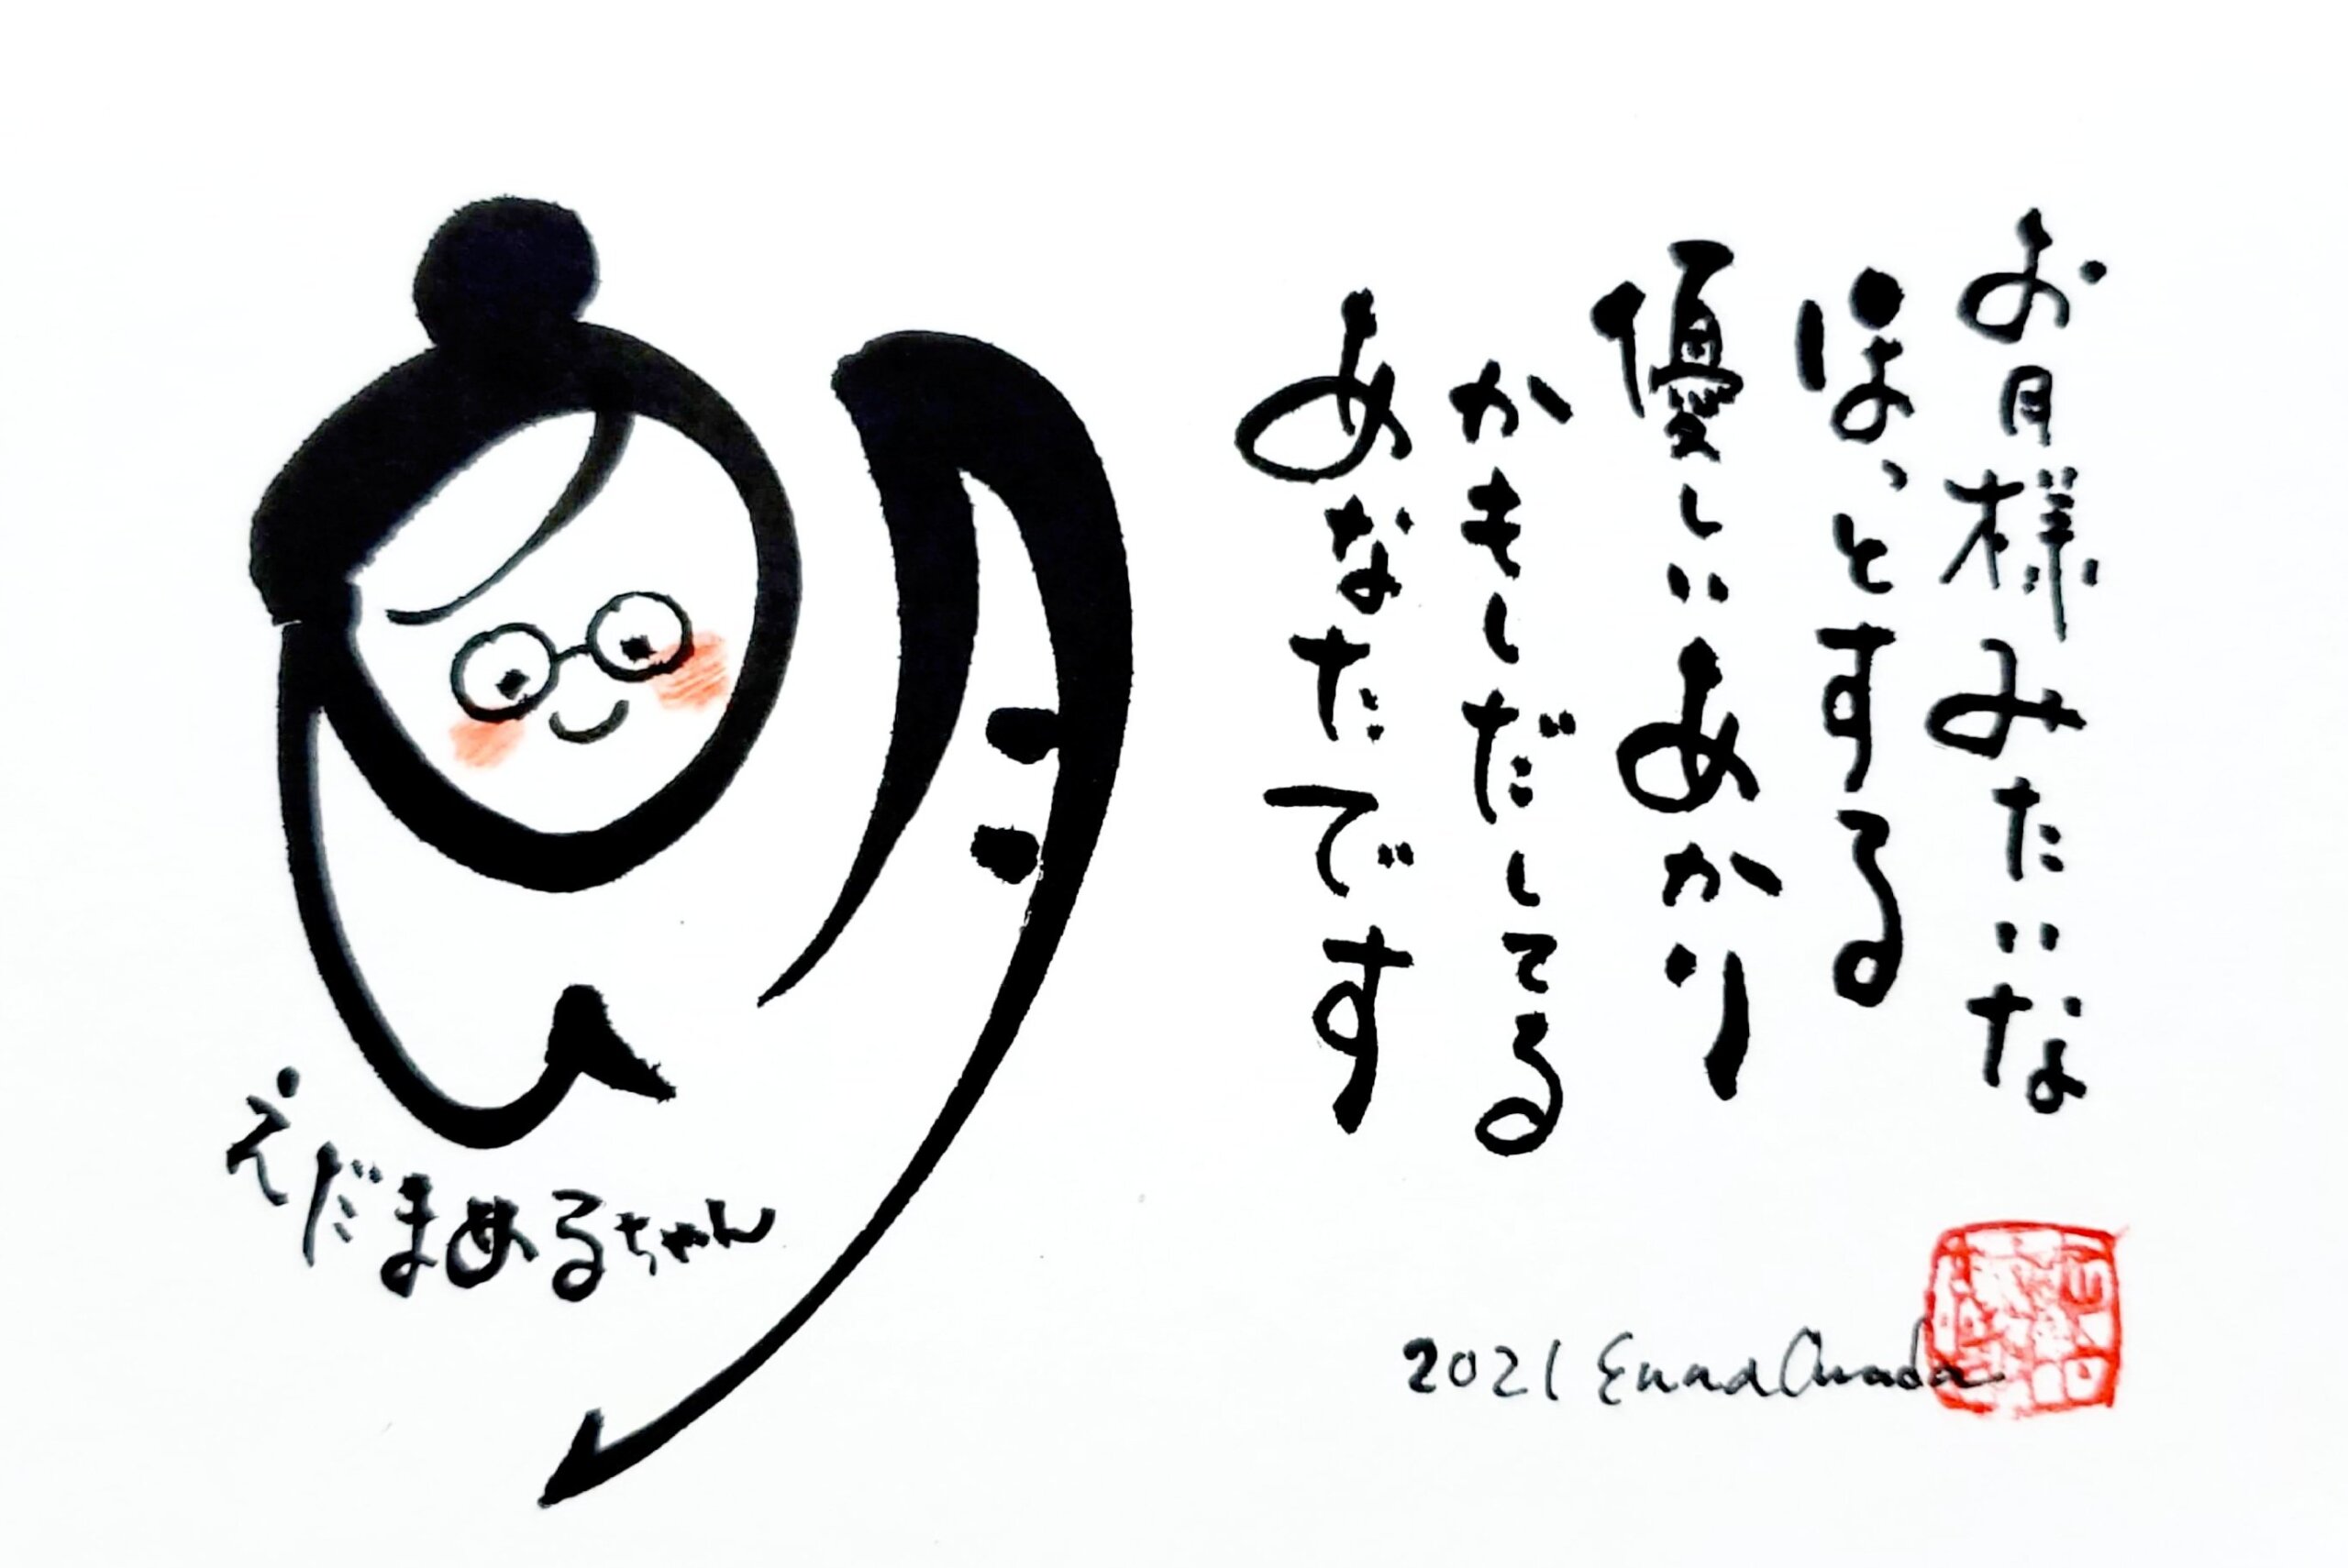 お月様みたいな
ほっとする
優しいあかり
かもしだしてる
あなたです
えだまめるちゃん
2021